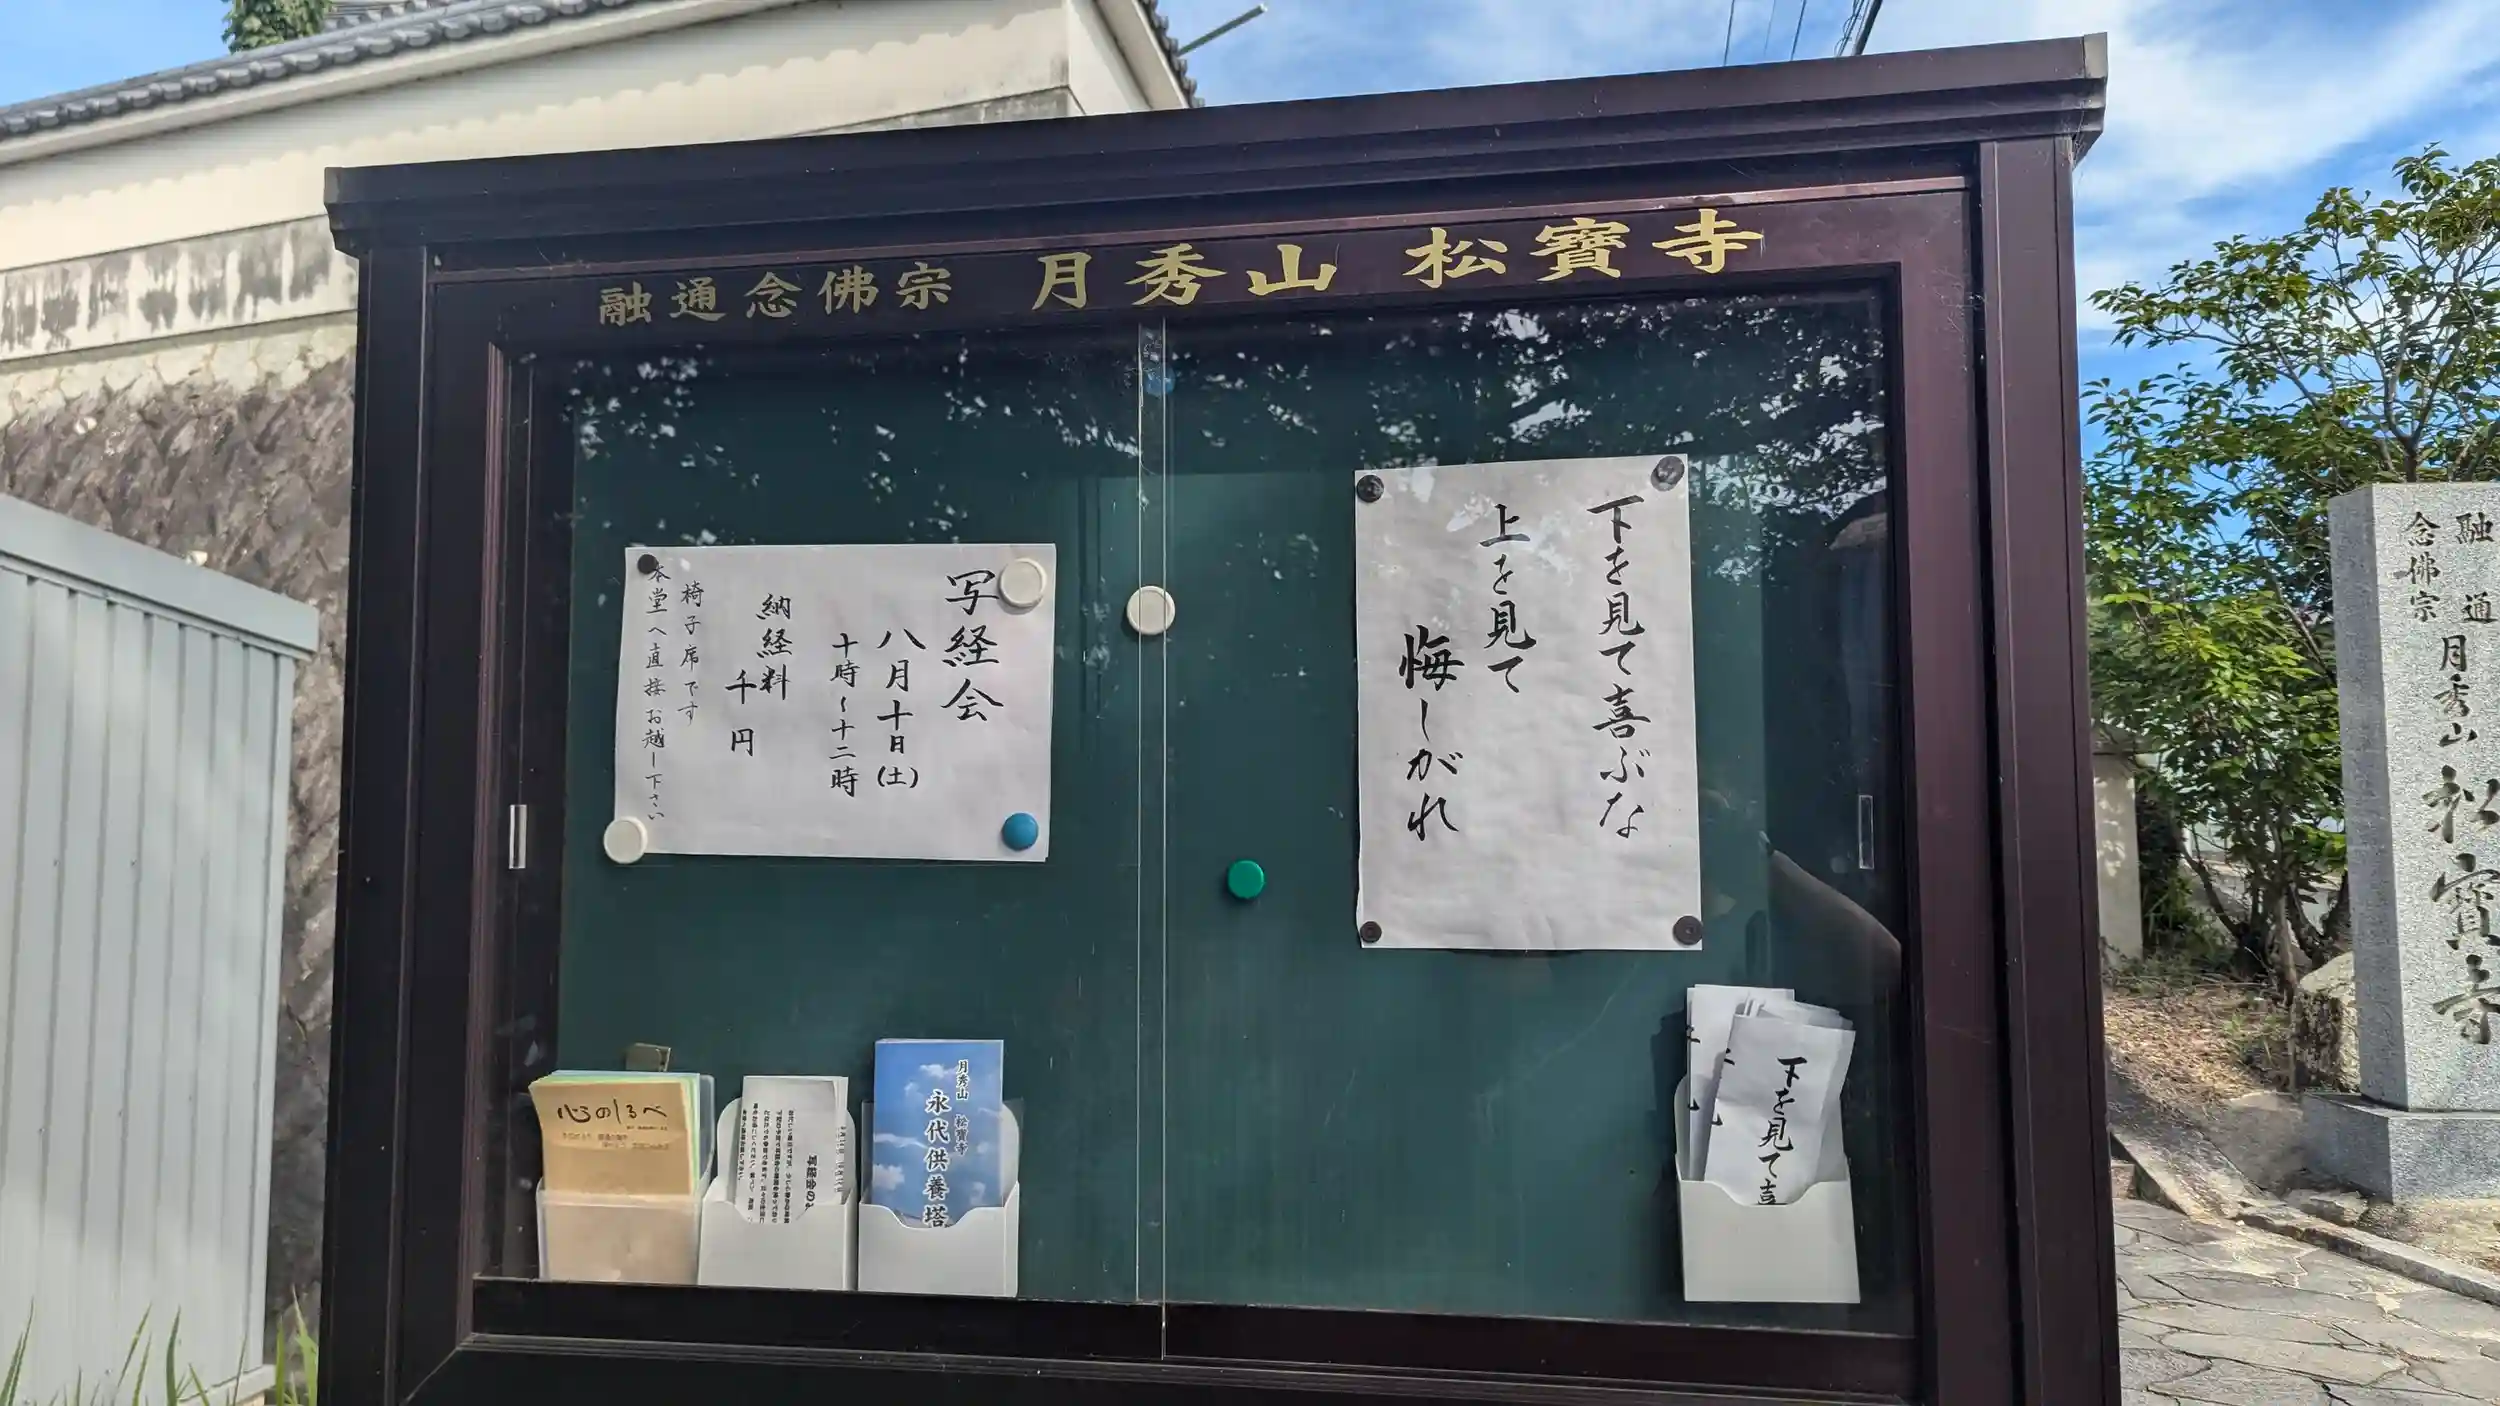 融通念佛宗 月秀山 松寶寺
下を見て喜ぶな
上を見て
悔しがれ
写経会
八月十日(土)
十時〜十二時
納経料
千円
椅子席です
本堂へ直接お越し下さい
心のしるべ
写経会の
月秀山 松寶寺
永代供養塔
下を見て喜
融通
念佛宗
月秀山 松寶寺